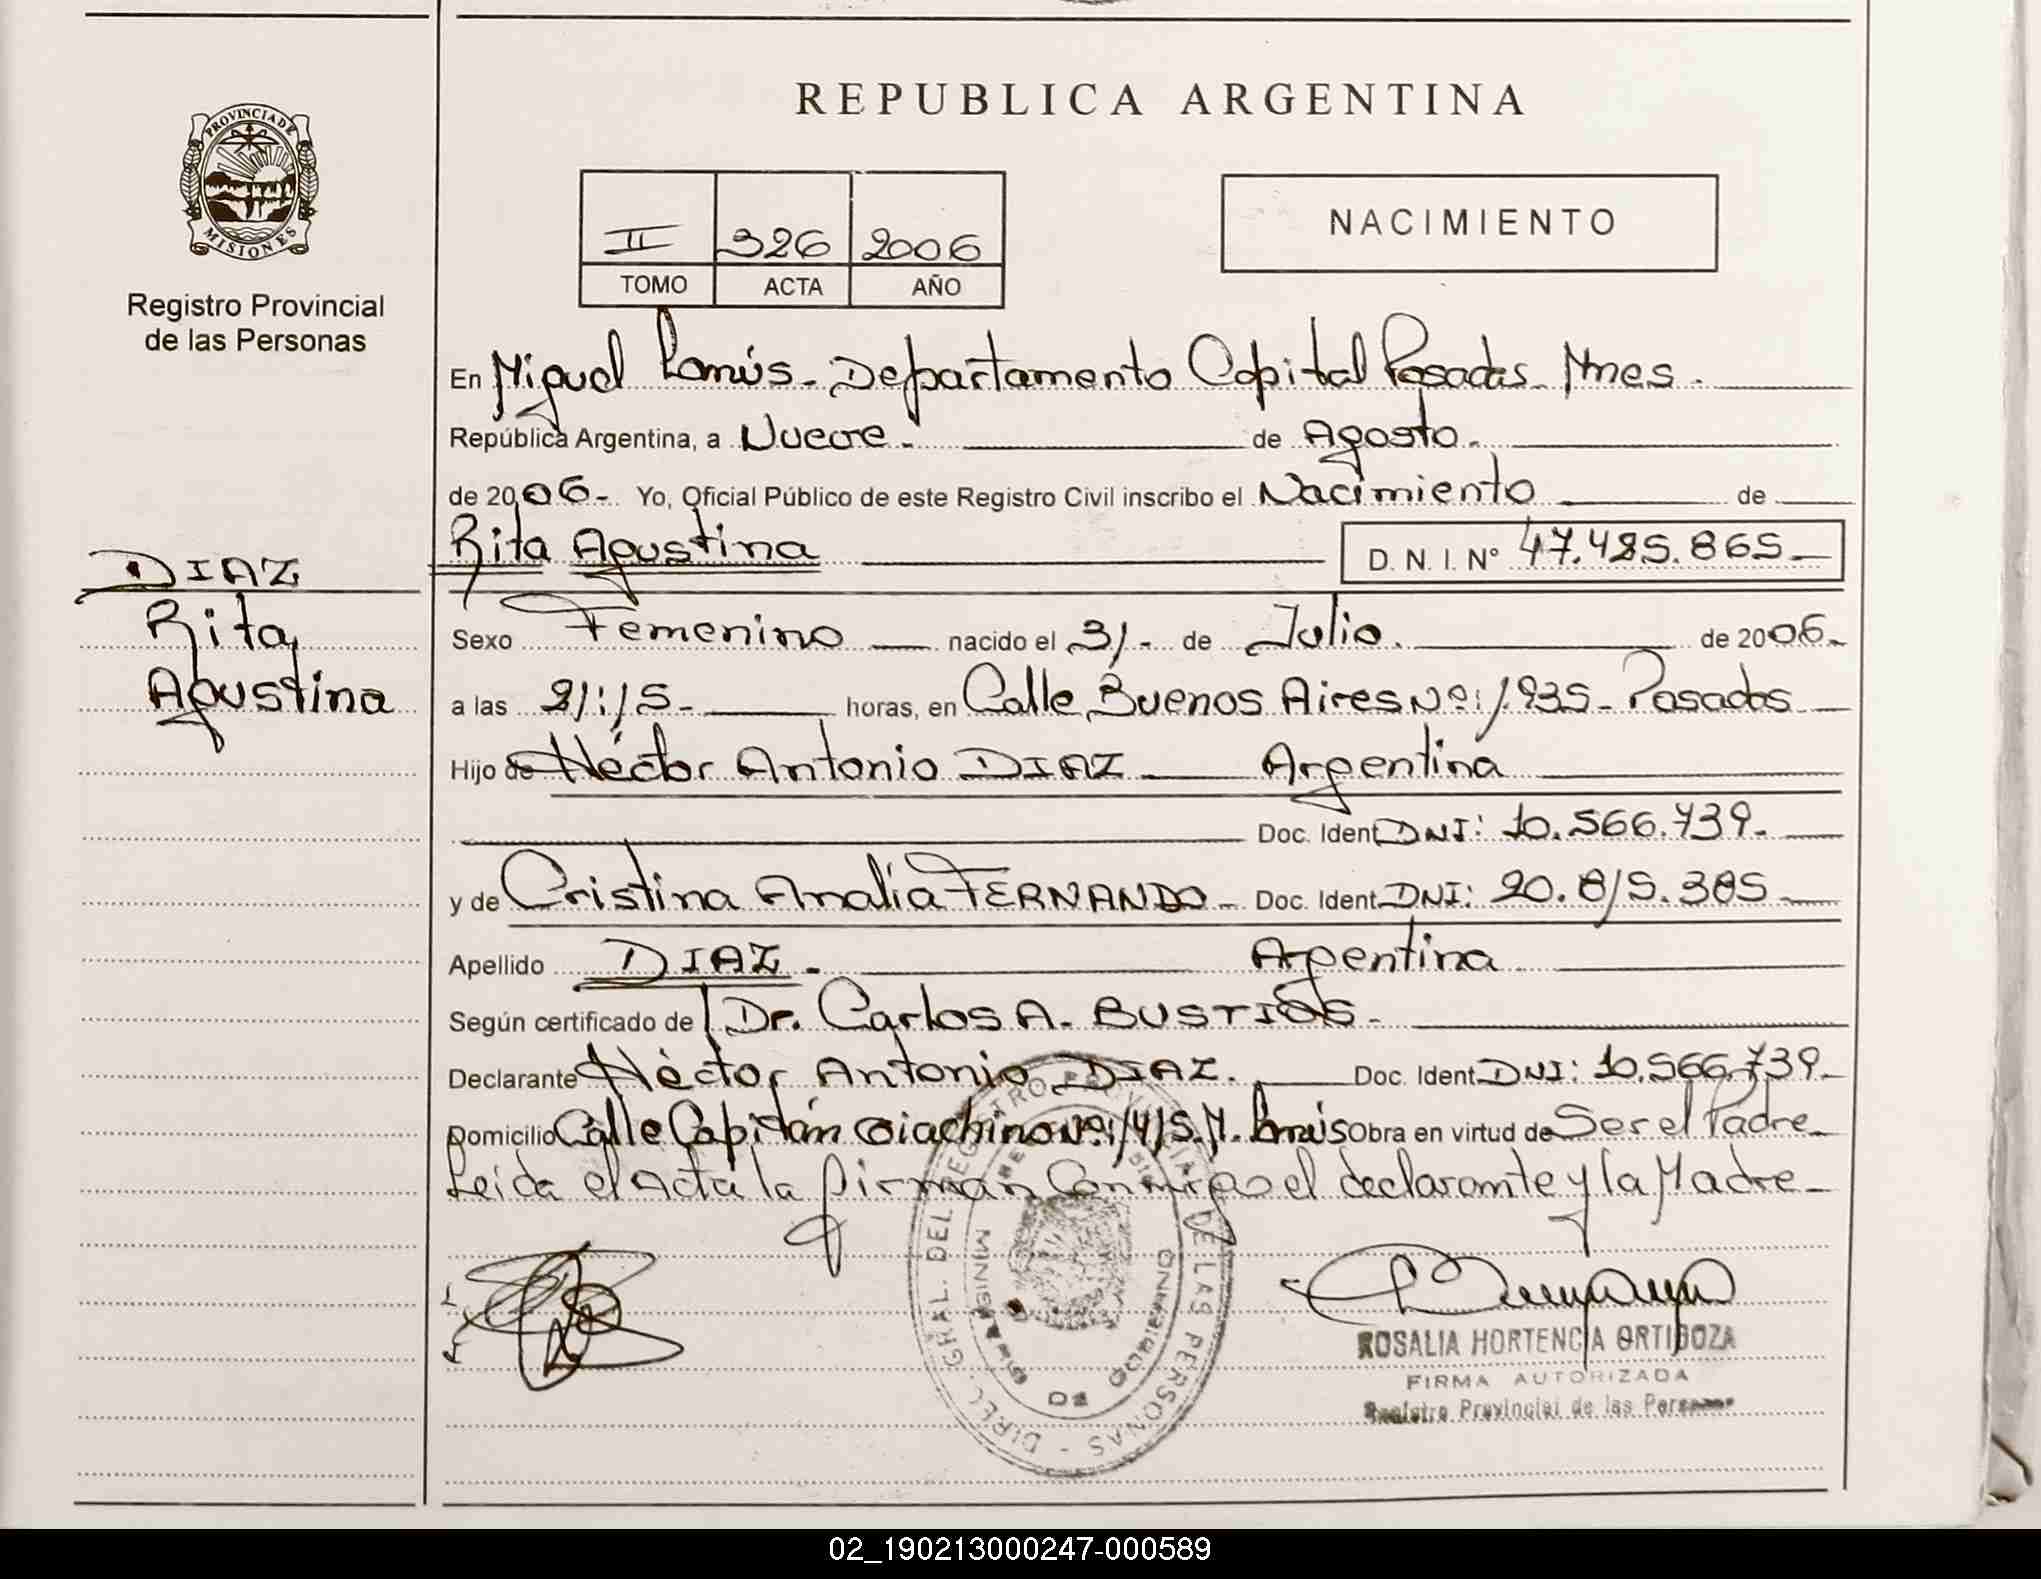 REPUBLICA ARGENTINA
PROVINCIA DE
MISIONES
Registro Provincial
de las Personas
II 326 2006
TOMO ACTA AÑO
NACIMIENTO
En Miguel Lanús. Departamento Capital Posadas Mnes.
República Argentina, a Nueve. de Agosto.
de 2006. Yo, Oficial Público de este Registro Civil inscribo el Nacimiento de
Rita Agustina D. N. I. Nº 47.485.865
DIAZ
Rita
Agustina
Sexo Femenino nacido el 31 de Julio. de 2006.
a las 21:15 horas, en Calle Buenos Aires Nº: 1935 Posadas
Hijo de Héctor Antonio DIAZ Argentina
Doc. Ident DNI: 10.566.739.
y de Cristina Analía FERNANDO Doc. Ident DNI: 20.815.385
Apellido DIAZ. Argentina
Según certificado de Dr. Carlos A. BUSTIOS
Declarante Héctor Antonio DIAZ. Doc. Ident DNI: 10.566.739
Domicilio Calle Capitán Giachino Nº: 1415 M. Lanús Obra en virtud de Ser el Padre
Leida el Acta la firman Conmigo el declarante y la Madre
DIREC. GRAL. DEL REGISTRO PROVINCIAL DE LAS PERSONAS
ROSALIA HORTENCIA ORTIGOZA
FIRMA AUTORIZADA
Registro Provincial de las Personas
02_190213000247-000589